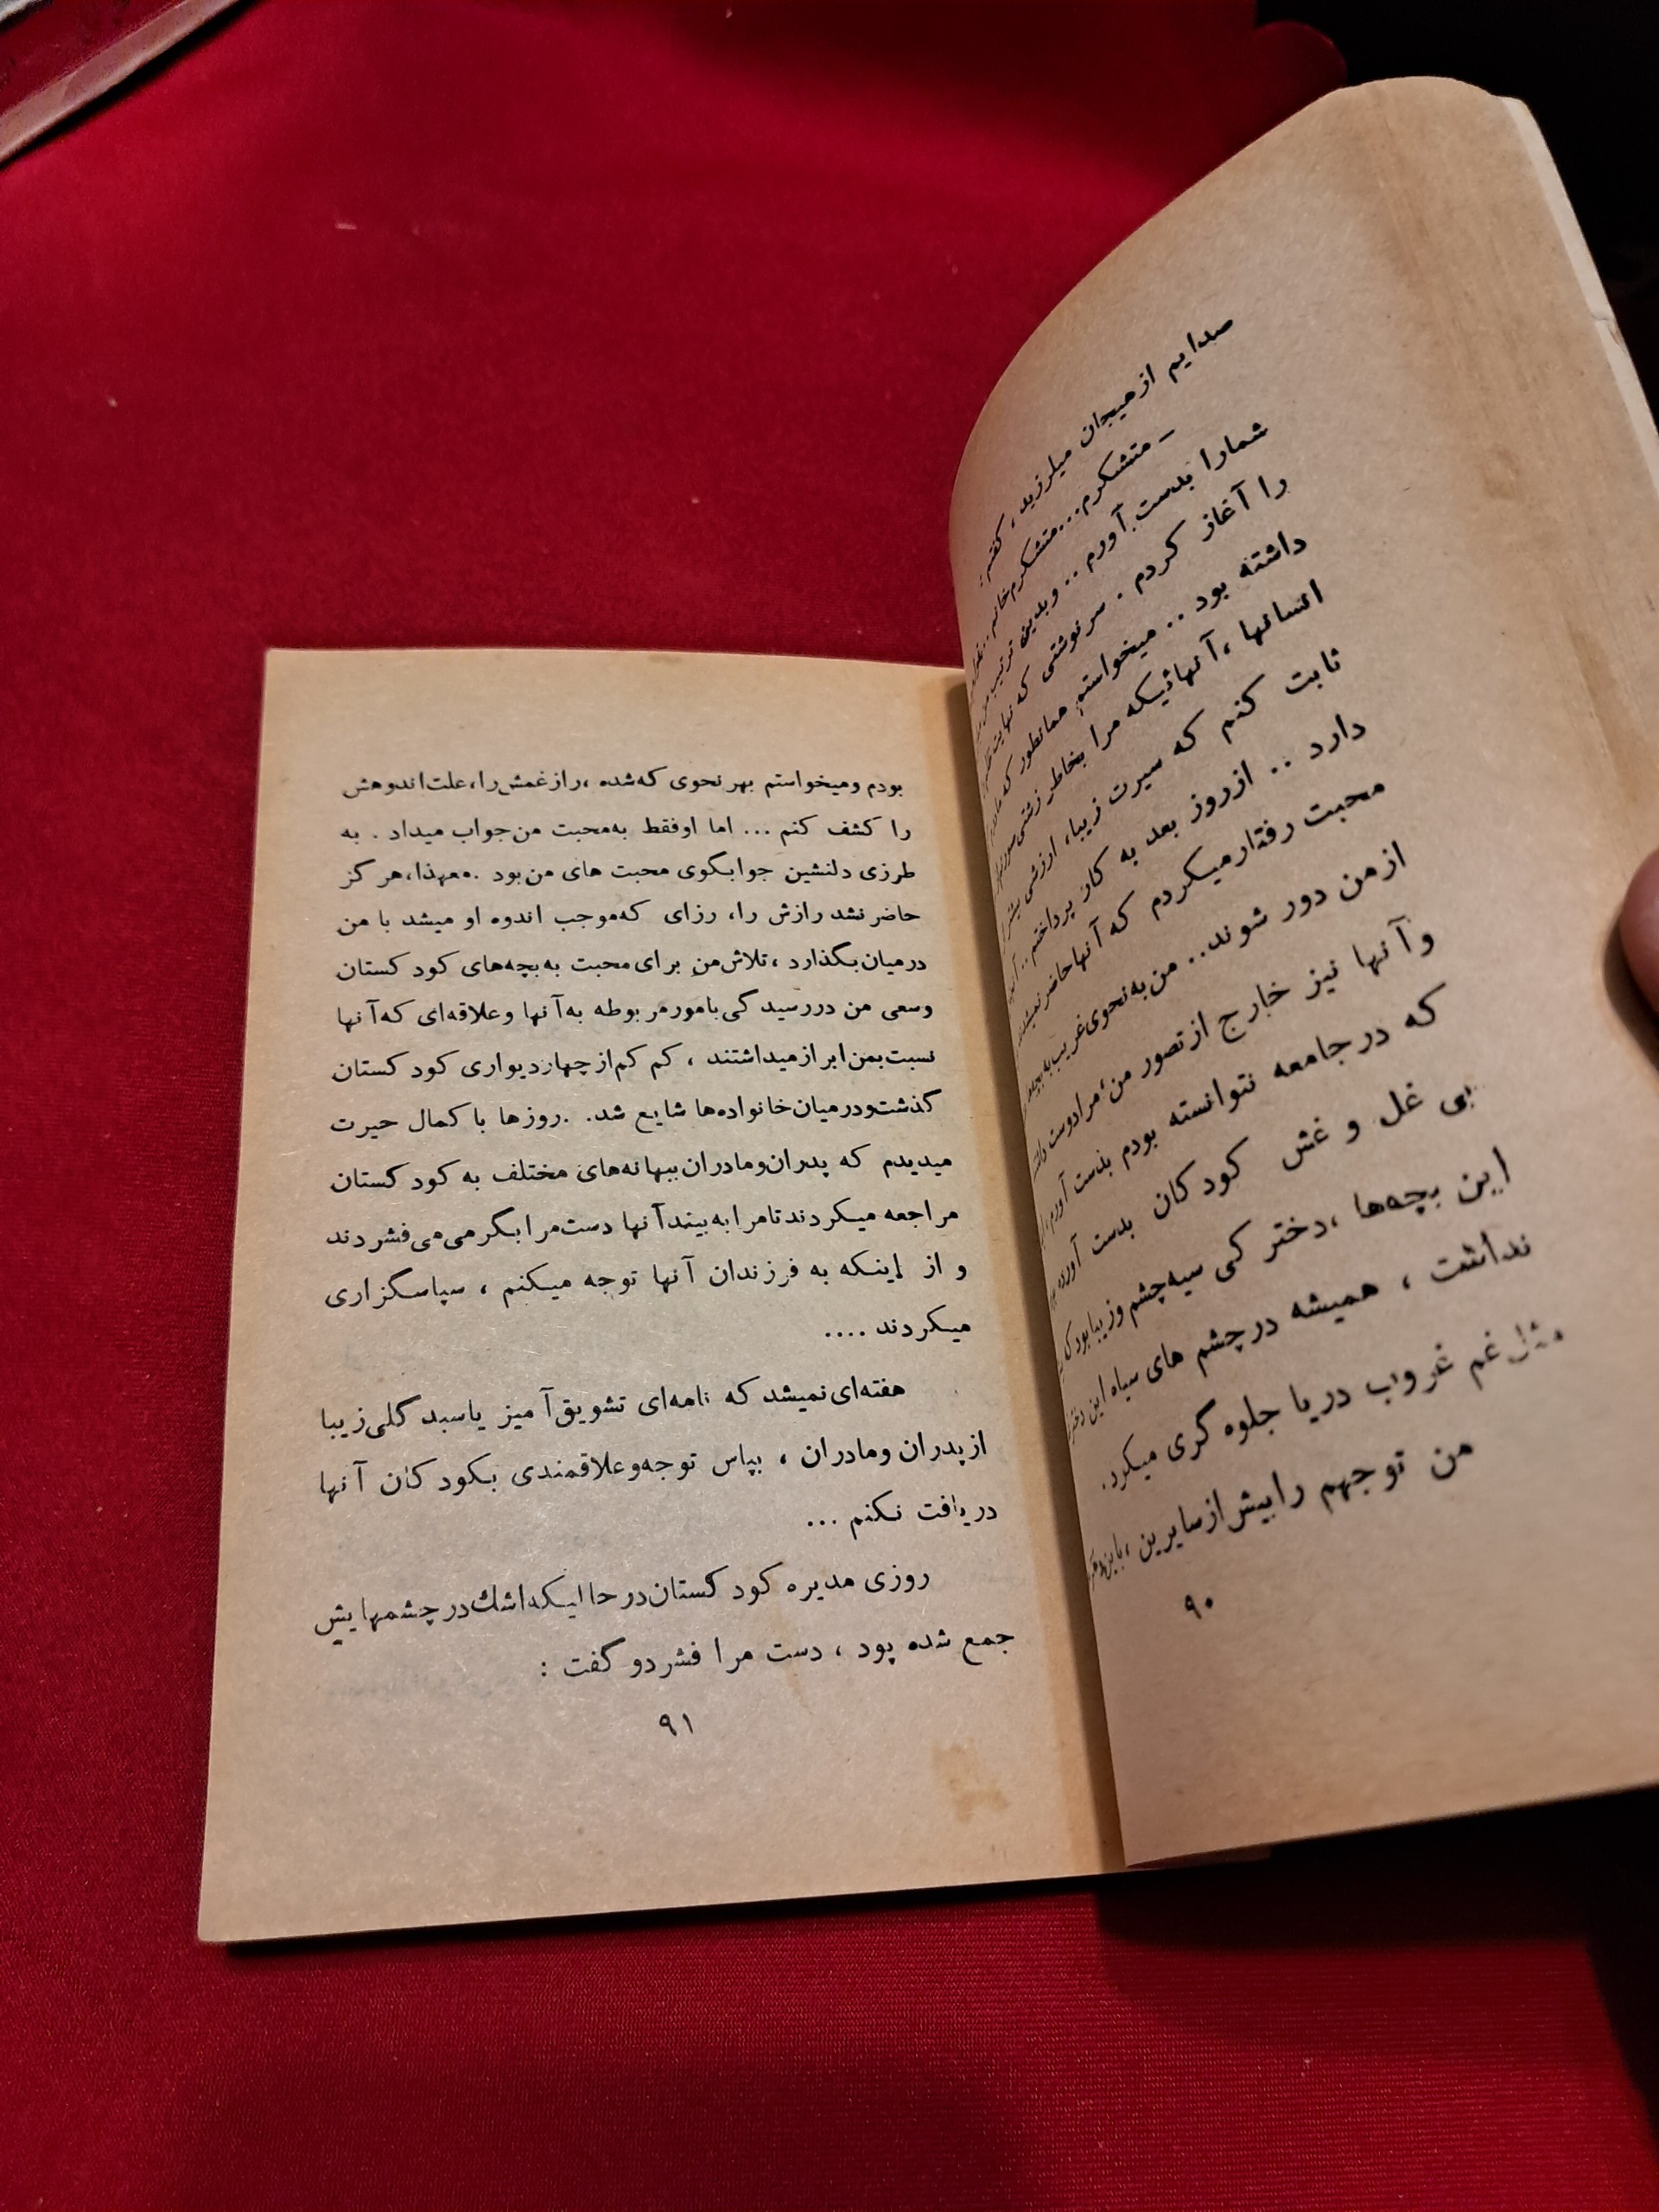 صدایم از هیجان میلرزید، گفتم:
ـ متشکرم...متشکرم خانم..
شمارا بدست آورم .. و بدین ترتیب من
را آغاز کردم . سرنوشتی که نهایت
داشته بود .. میخواستم همانطور که مادرم
انسانها ،آنهائیکه مرا بخاطر زشتی صورتم
ثابت کنم که سیرت زیبا، ارزشی بیشتر
دارد .. از روز بعد به کار پرداختم..
محبت رفتار میکردم که آنها حاضر نمیشدند
از من دور شوند.. من به نحوی غریب به بچه‌ها
و آنها نیز خارج از تصور من،مرا دوست
که در جامعه نتوانسته بودم بدست آورم،
بی غل و غش کودکان بدست آورده
این بچه‌ها ،دختر کی سیه‌چشم و زیبا بود که
نداشت ، همیشه در چشم های سیاه این دختر
مثل غم غروب دریا جلوه گری میکرد.
من توجهم را بیش از سایرین ،باین
۹۰
بودم ومیخواستم بهر نحوی که‌شده ،راز غمش را، علت اندوهش
را کشف کنم ... اما اوفقط به‌محبت من‌جواب میداد . به
طرزی دلنشین جوابگوی محبت های من‌بود .معهذا،هرگز
حاضر نشد رازش را، رزای که‌موجب اندوه او میشد با من
درمیان بگذارد ،تلاش‌من برای محبت به‌بچه‌های کودکستان
وسعی من دررسیدگی بامورمربوطه به‌آنها وعلاقه‌ای که‌آنها
نسبت‌بمن ابراز میداشتند ، کم کم‌از چهاردیواری کودکستان
گذشت‌ودرمیان خانواده‌ها شایع شد. .روزها با کمال حیرت
میدیدم که پدران‌ومادران ببهانه‌های مختلف به کودکستان
مراجعه میکردند تا مرا به‌بیند آنها دست‌مرا بگرمی می‌فشردند
و از اینکه به فرزندان آنها توجه میکنم ، سپاسگزاری
میکردند ....
هفته‌ای نمیشد که نامه‌ای تشویق‌آمیز یا سبد گلی زیبا
از پدران ومادران ، بپاس توجه‌وعلاقمندی بکودکان آنها
دریافت نکنم ...
روزی مدیره کودکستان‌در حالیکه اشك‌در چشمهایش
جمع شده بود ، دست مرا فشرد و گفت :
۹۱